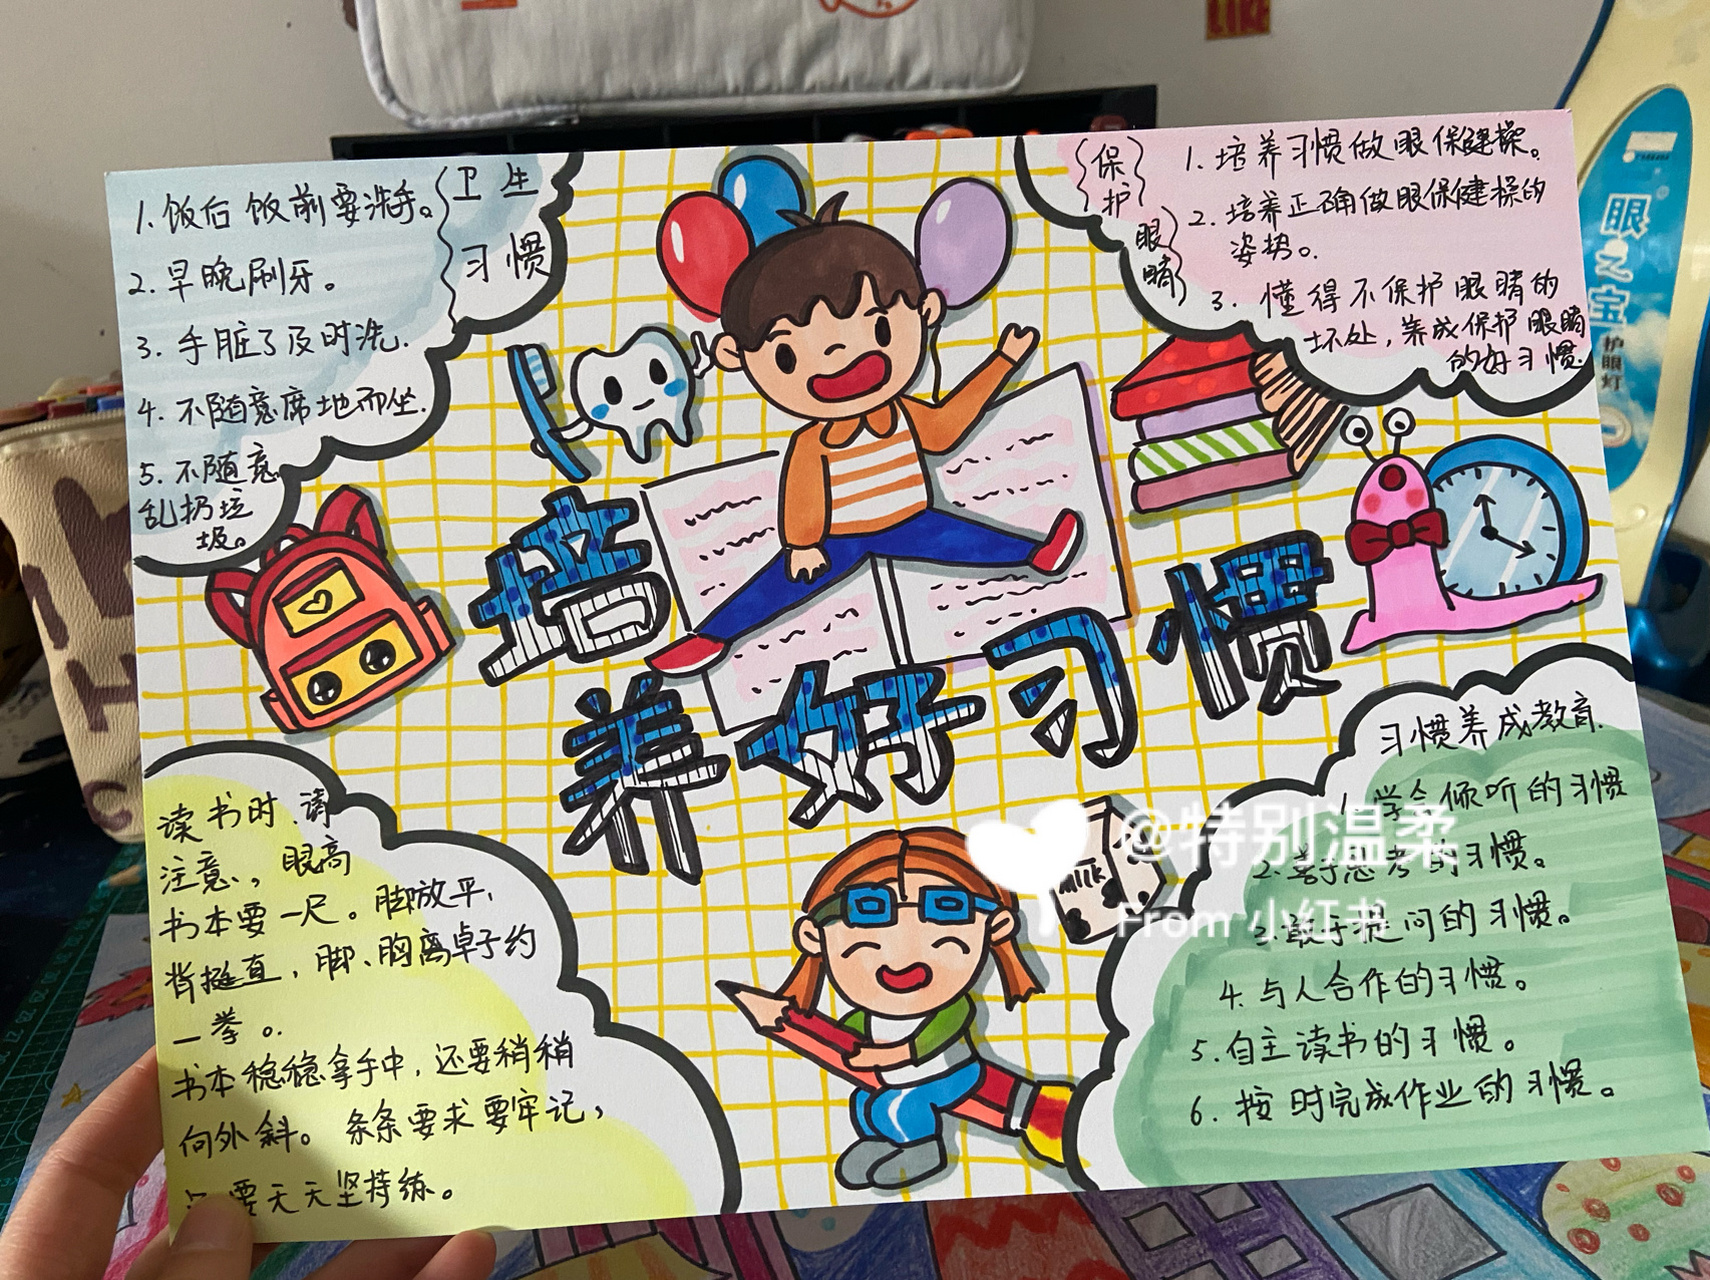 LIKE
卫生
习惯
1. 饭后饭前要洗手。
2. 早晚刷牙。
3. 手脏了及时洗.
4. 不随意席地而坐.
5. 不随意
乱扔垃
圾。
保护
眼睛
1. 培养习惯做眼保健操。
2. 培养正确做眼保健操的
姿势。
3. 懂得不保护眼睛的
坏处，养成保护眼睛
的好习惯.
眼之宝
护眼灯
培
养好习惯
读书时 请
注意、，眼高
书本要一尺。脚放平，
背挺直，脚、胸离桌子约
一拳。.
书本稳稳拿手中，还要稍稍
向外斜。条条要求要牢记，
要天天坚持练。
习惯养成教育.
学会倾听的习惯
2. 善于思考的习惯。
3. 敢于提问的习惯。
4. 与人合作的习惯。
5. 自主读书的习惯。
6. 按时完成作业的习惯。
milk
@特别温柔
From 小红书